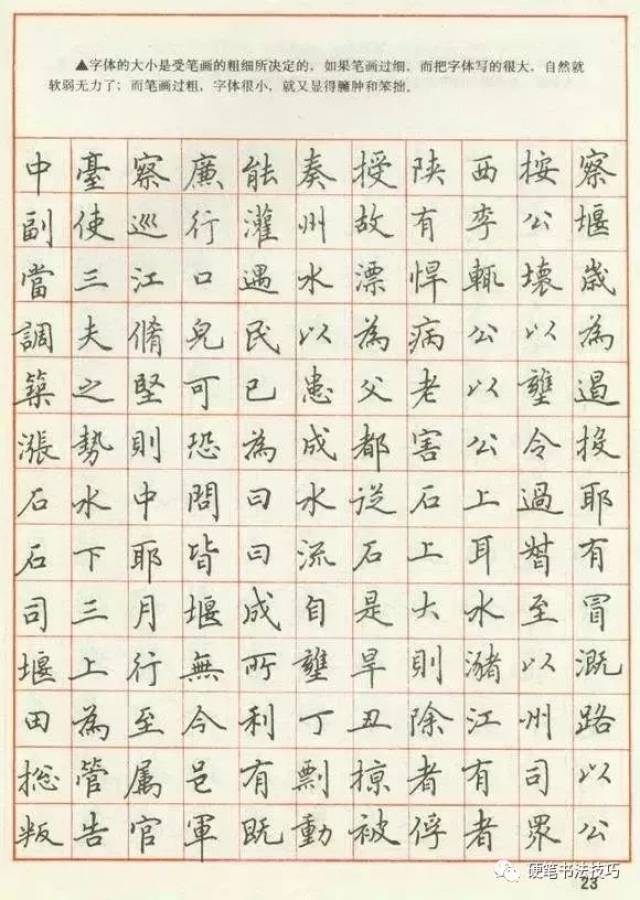 ▲字体的大小是受笔画的粗细所决定的，如果笔画过细，而把字体写的很大，自然就
软弱无力了；而笔画过粗，字体很小，就又显得臃肿和笨拙。
中臺察廉能奏授陕西按察
副使巡行灌州故有李公堰
當三江口遇水漂悍輒壞歲
調夫脩皃民以為病公以為
築之堅可已患父老以壅遏
漲勢則恐為成都害公令投
石水中問曰水從石上過耶
石下耶皆曰流石上耳有
司三月堰成自是大水至冒
堰上行無所壅旱則瀦以溉
田為至今利丁丑除江州路
総管属邑有剽掠者有司以
叛告官軍既動被俘者眾公
硬笔书法技巧
23